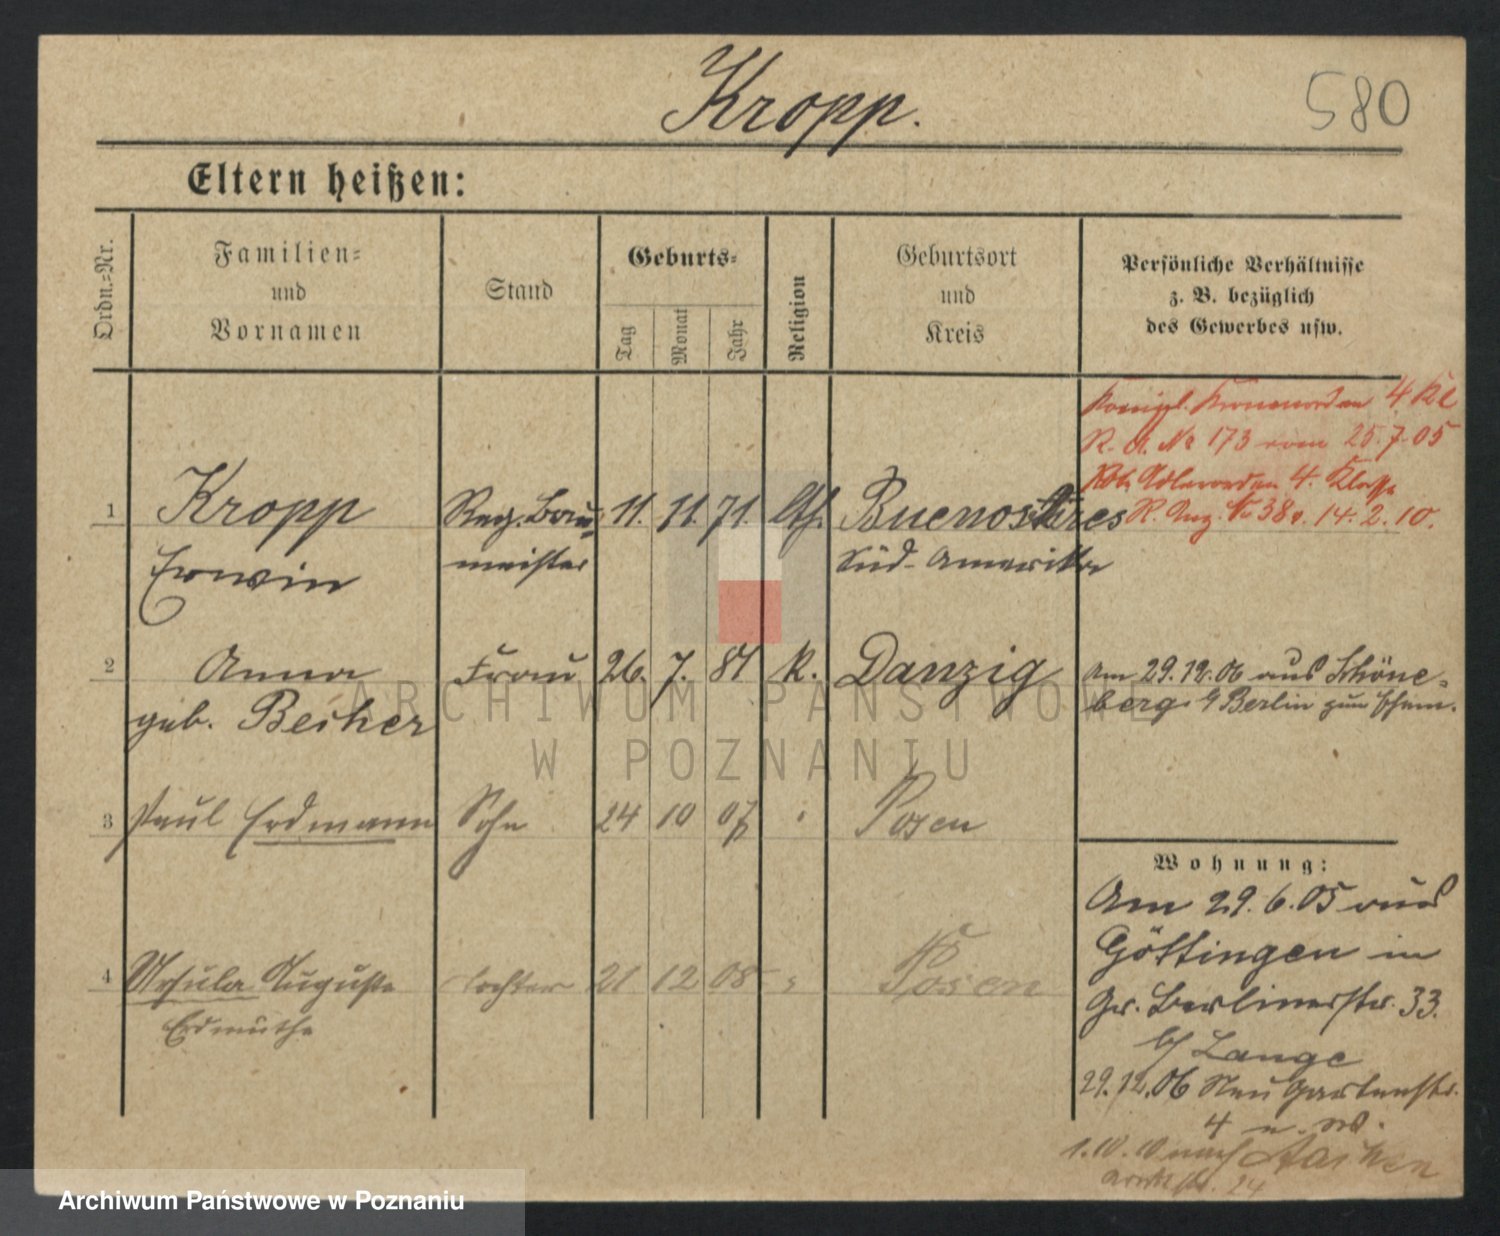 Kropp.
580
Eltern heißen:
Ordn.=Nr.
Familien=
und
Vornamen
Stand
Geburts=
Tag
Monat
Jahr
Religion
Geburtsort
und
Kreis
Persönliche Verhältnisse
z. B. bezüglich
des Gewerbes usw.
Königl. Kronenorden 4. Kl
R. A. No 173 vom 25.7.05
Rot. Adlerorden 4. Klasse
R. Anz. No 38 v. 14.2.10.
1 Kropp Reg. Bau= 11. 11. 71. Buenos Aires
Erwin meister Süd-Amerika
2 Anna Frau 26. 7. 81 k. Danzig
geb. Becher
Am 29.12.06 aus Schöne=
berg b/ Berlin zum
3 Paul Erdmann Sohn 24 10 07 Posen
4 Ursula Auguste Tochter 21 12 08 Posen
Erdmuthe
Wohnung:
Am 29.6.05 aus
Göttingen in
Gr. Berlinerstr. 33.
b/ Lange
29.12.06 Neu Gartenstr.
4 u. W.
1.10.10 nach Aachen
24
ARCHIWUM PAŃSTWOWE
W POZNANIU
Archiwum Państwowe w Poznaniu